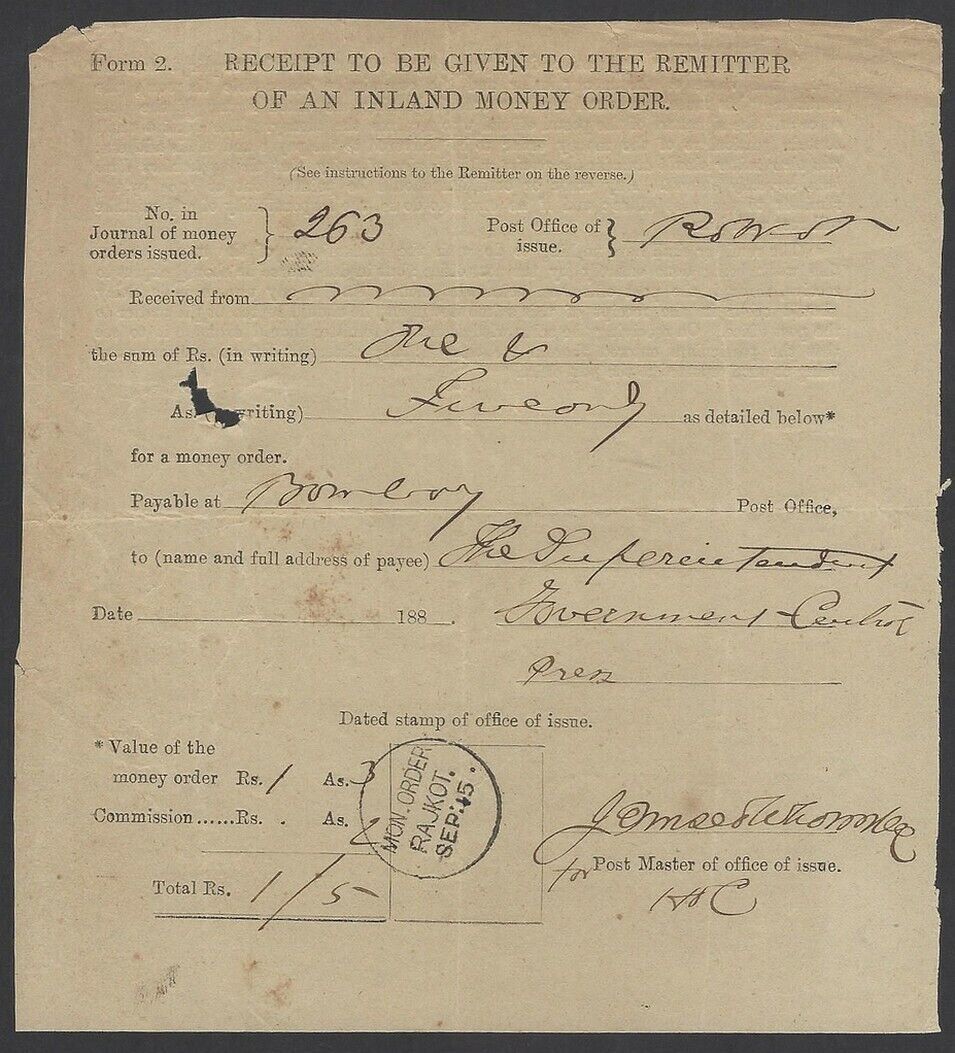 Form 2. RECEIPT TO BE GIVEN TO THE REMITTER
OF AN INLAND MONEY ORDER.
(See instructions to the Remitter on the reverse.)
No. in
Journal of money
orders issued. } 263
Post Office of
issue. }
Received from
the sum of Rs. (in writing) One &
As. ( writing) Five only as detailed below*
for a money order.
Payable at Bombay Post Office,
to (name and full address of payee) The Superintendent
Date 188 . Government Central
Press
Dated stamp of office of issue.
* Value of the
money order Rs. 1 As. 3
Commission ......Rs. . As. 2
Total Rs. 1/5
MON. ORDER
RAJKOT.
SEP. 15.
for Post Master of office of issue.